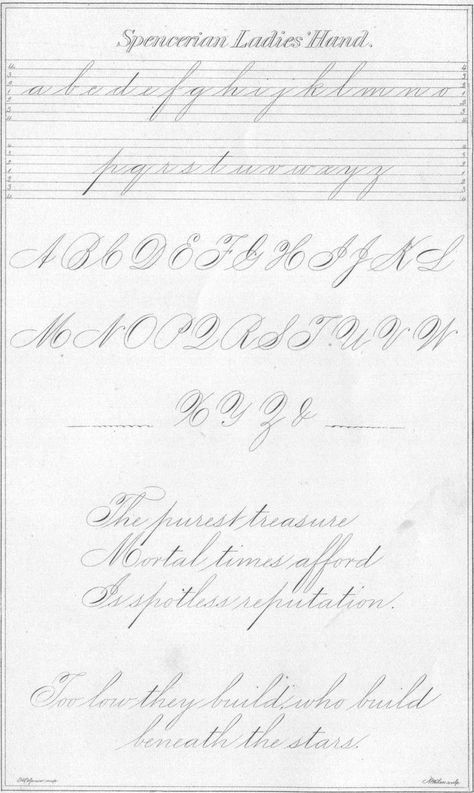 Spencerian Ladies' Hand.
a b c d e f g h i j k l m n o
p q r s t u v w x y z
A B C D E F G H I J K L
M N O P Q R S T U V W
X Y Z &
The purest treasure
Mortal times afford
Is spotless reputation.
Too low they build, who build
beneath the stars.